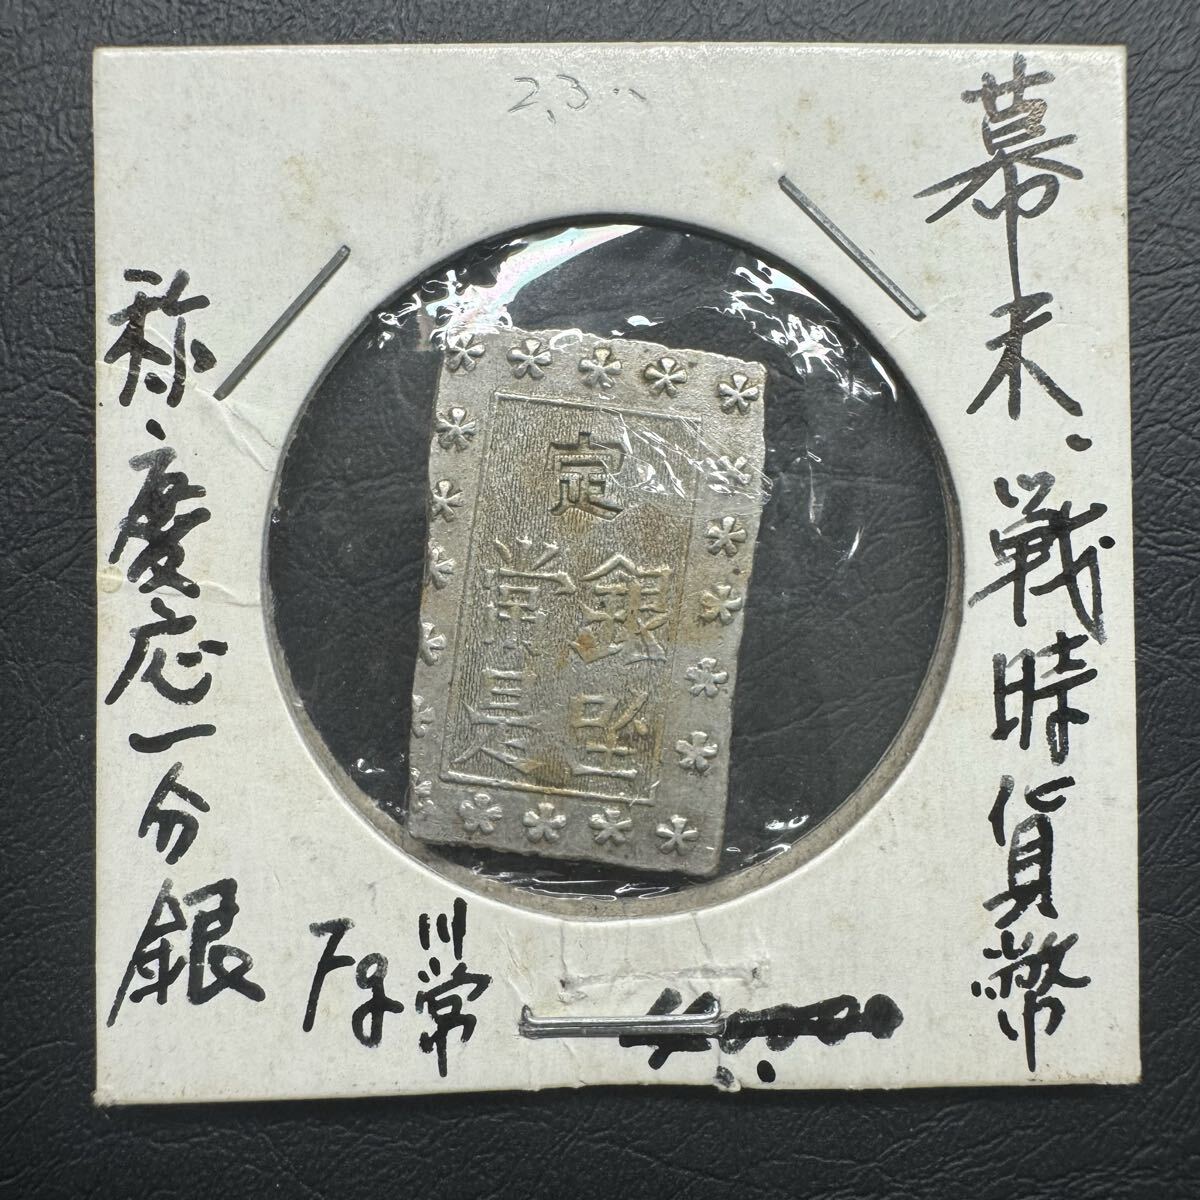 幕末.戦時貨幣
称.慶応一分銀
川常
7g
定
銀座
常是